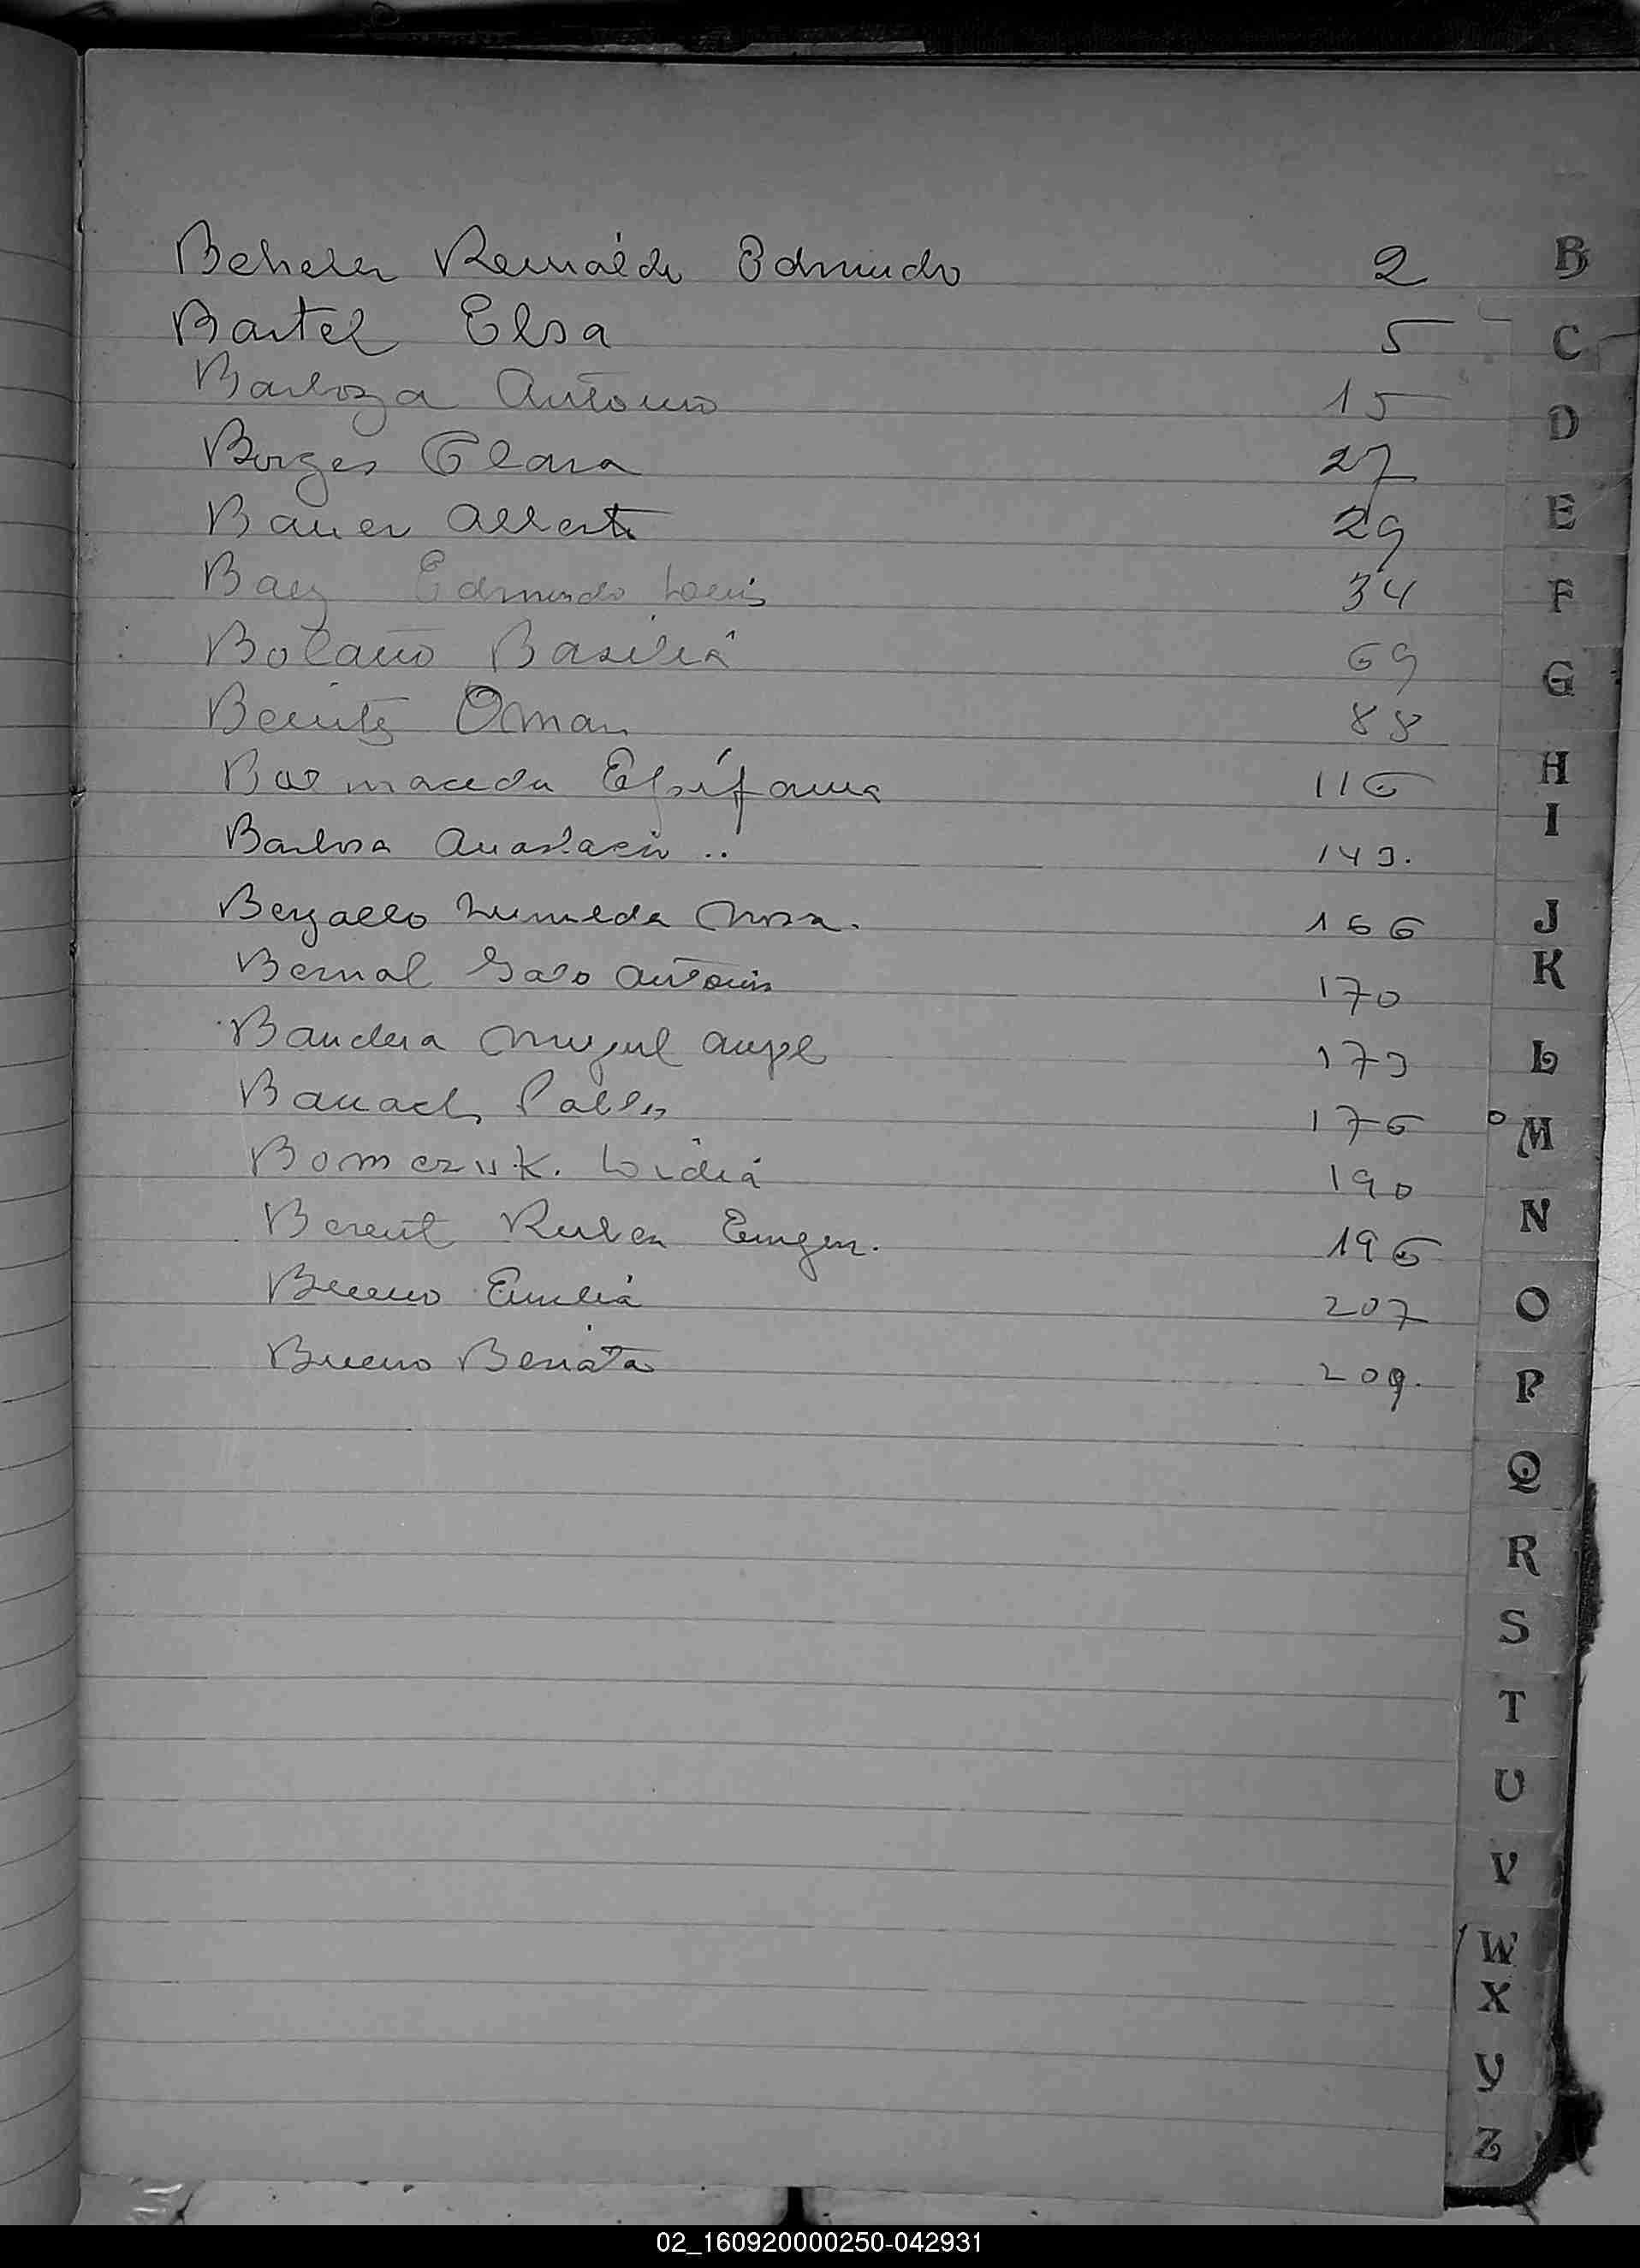 Beheler Reinaldo Edmundo 2
Bartel Elsa 5
Barboza Antonio 15
Borges Clara 27
Bauer Alberto 29
Baez Edmundo Luis 34
Bolaño Basilia 69
Benitez Omar 88
Balmaceda Epifania 116
Barbosa Anastacio .. 143.
Bergallo Rosa. 166
Bernal Galo Antonio 170
Bandera Miguel Angel 173
Banach Pablo 176
Bomczuk. Lidia 190
Berent Ruben Eugen. 196
Bueno Emilia 207
Bueno Beniata 209.
B
C
D
E
F
G
H
I
J
K
L
M
N
O
P
Q
R
S
T
U
V
W
X
Y
Z
02_160920000250-042931